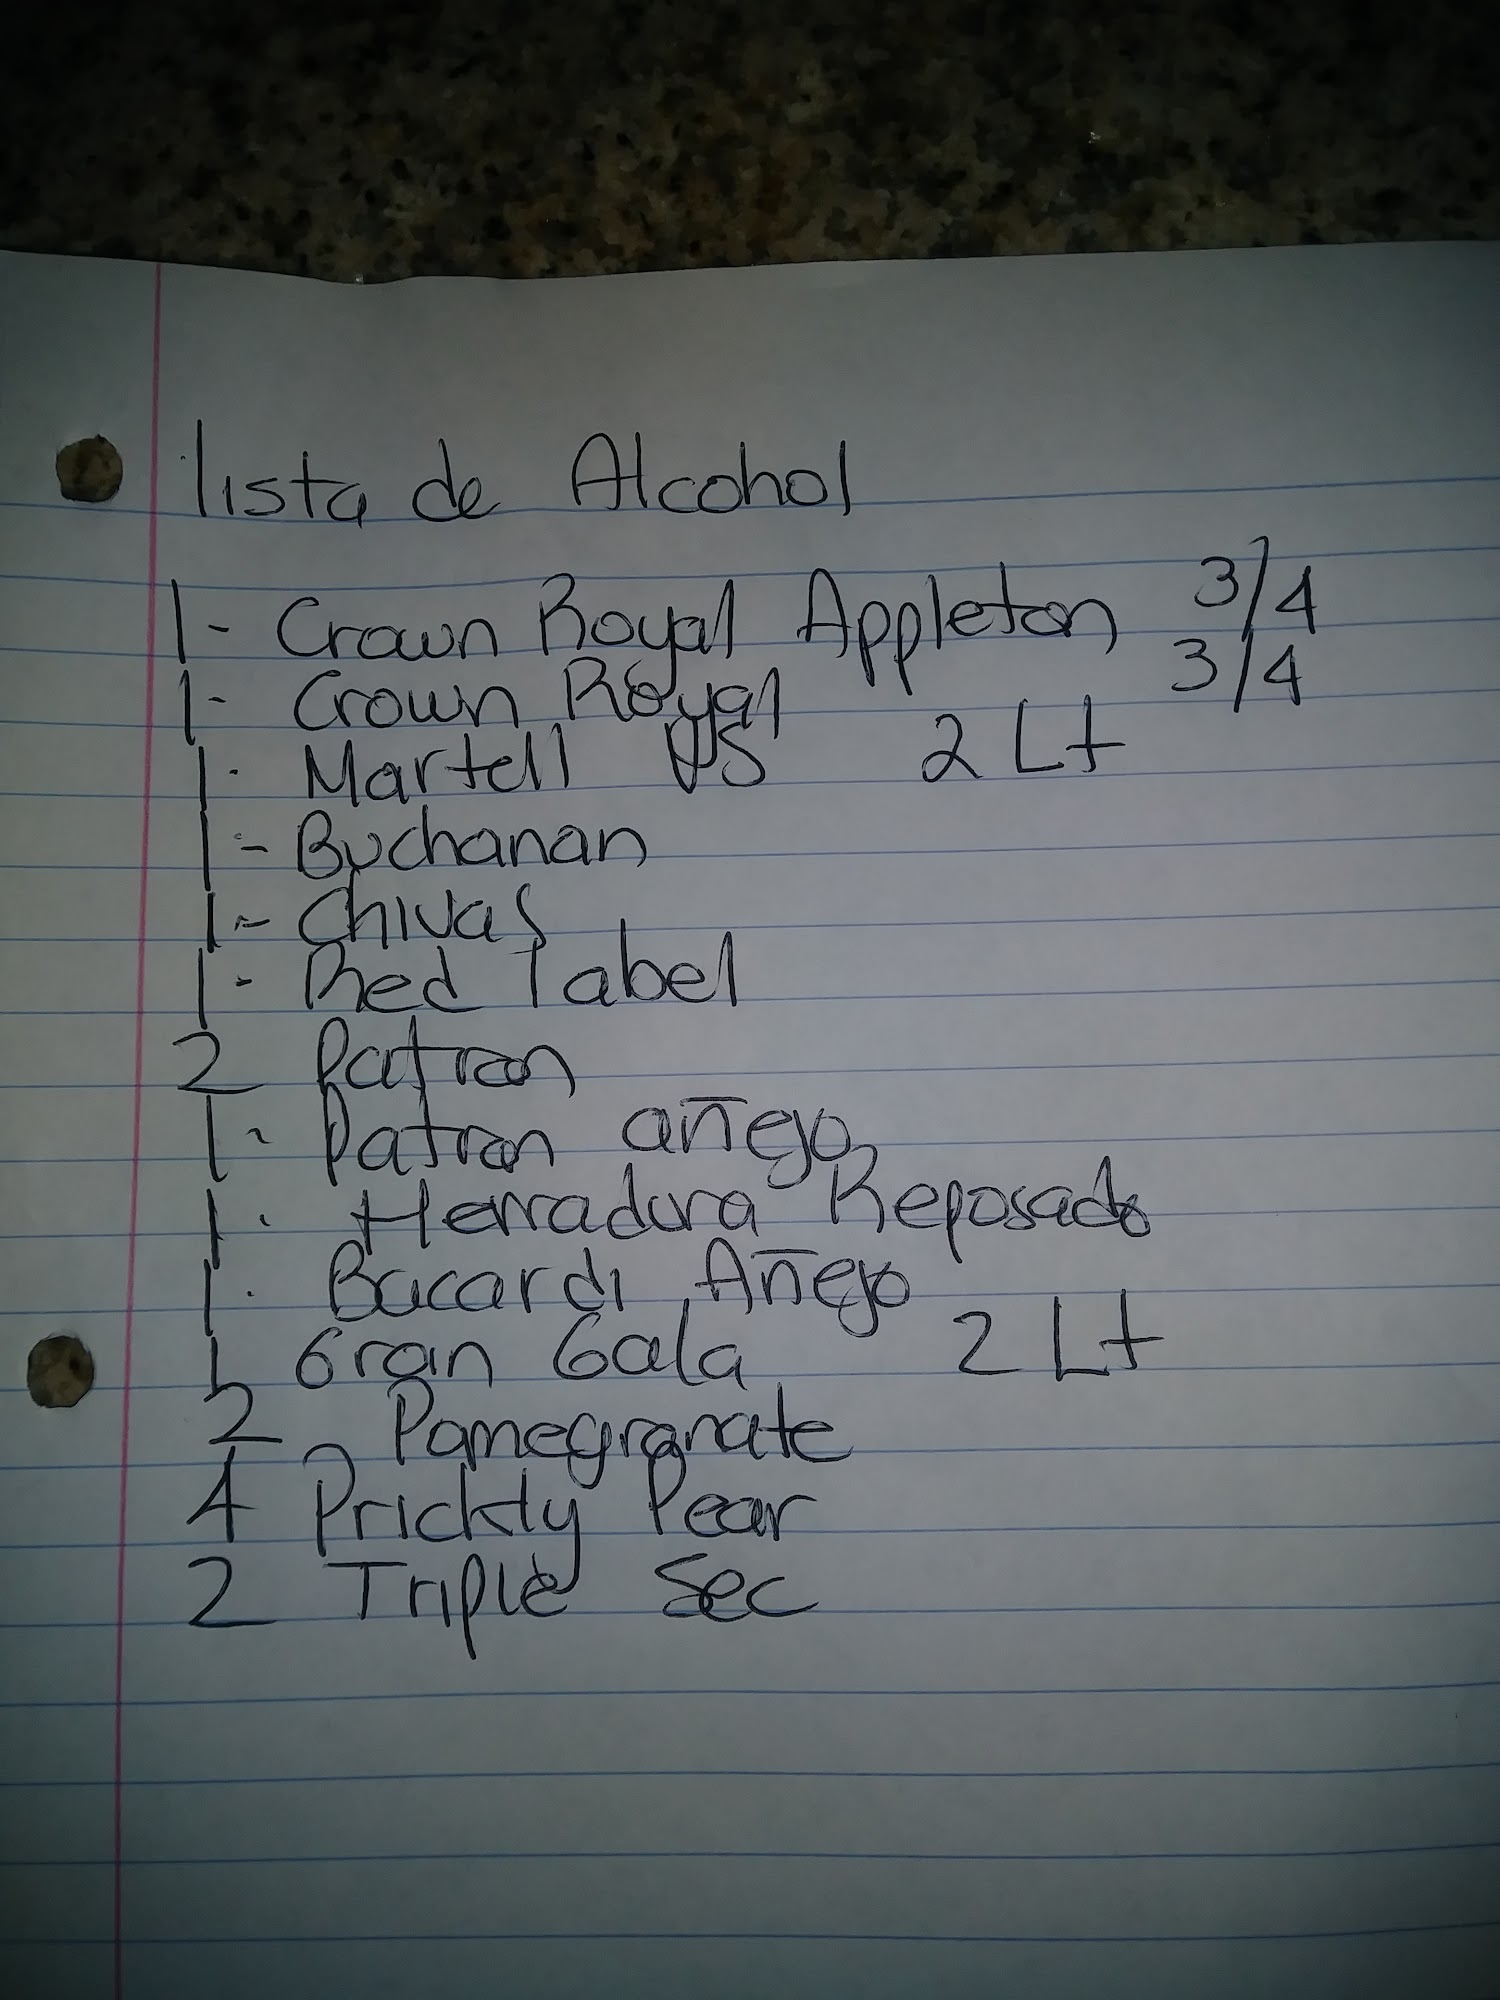 lista de Alcohol
1- Crown Royal Appleton 3/4
1- Crown Royal 3/4
1- Martell VS 2 Lt
1- Buchanan
1- Chivas
1- Red label
2 Patron
1- Patron añejo
1. Herradura Reposado
1. Bacardi Añejo
1 Gran Gala 2 Lt
2 Pomegranate
4 Prickly Pear
2 Triple Sec